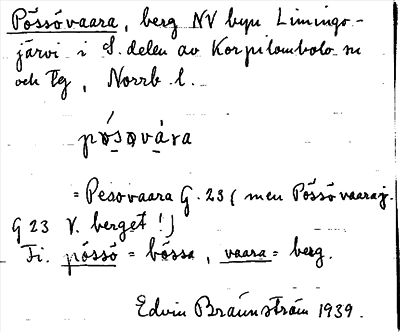 Pössövaara, berg NV byn Limingo-
järvi i S. delen av Korpilombolo sn
och tg, Norrb l.
pǿsova̍ra
= Pesovaara G. 23 (men Pössövaaraj.
G 23 V. berget!)
Fi. pössö = bössa, vaara = berg.
Edvin Brännström 1939.